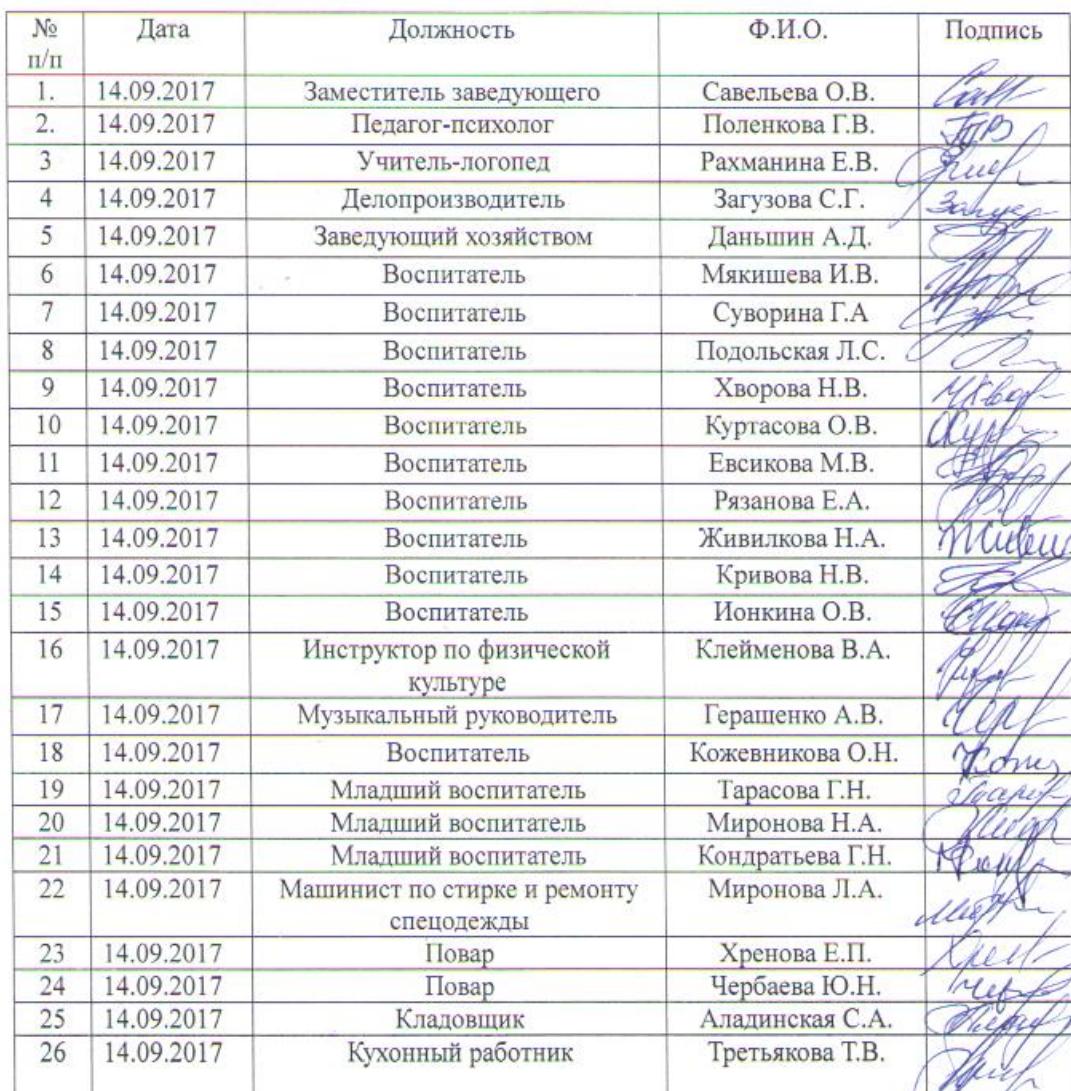 № Дата Должность Ф.И.О. Подпись
п/п
1. 14.09.2017 Заместитель заведующего Савельева О.В.
2. 14.09.2017 Педагог-психолог Поленкова Г.В.
3 14.09.2017 Учитель-логопед Рахманина Е.В.
4 14.09.2017 Делопроизводитель Загузова С.Г.
5 14.09.2017 Заведующий хозяйством Даньшин А.Д.
6 14.09.2017 Воспитатель Мякишева И.В.
7 14.09.2017 Воспитатель Суворина Г.А
8 14.09.2017 Воспитатель Подольская Л.С.
9 14.09.2017 Воспитатель Хворова Н.В.
10 14.09.2017 Воспитатель Куртасова О.В.
11 14.09.2017 Воспитатель Евсикова М.В.
12 14.09.2017 Воспитатель Рязанова Е.А.
13 14.09.2017 Воспитатель Живилкова Н.А.
14 14.09.2017 Воспитатель Кривова Н.В.
15 14.09.2017 Воспитатель Ионкина О.В.
16 14.09.2017 Инструктор по физической Клейменова В.А.
культуре
17 14.09.2017 Музыкальный руководитель Геращенко А.В.
18 14.09.2017 Воспитатель Кожевникова О.Н.
19 14.09.2017 Младший воспитатель Тарасова Г.Н.
20 14.09.2017 Младший воспитатель Миронова Н.А.
21 14.09.2017 Младший воспитатель Кондратьева Г.Н.
22 14.09.2017 Машинист по стирке и ремонту Миронова Л.А.
спецодежды
23 14.09.2017 Повар Хренова Е.П.
24 14.09.2017 Повар Чербаева Ю.Н.
25 14.09.2017 Кладовщик Аладинская С.А.
26 14.09.2017 Кухонный работник Третьякова Т.В.